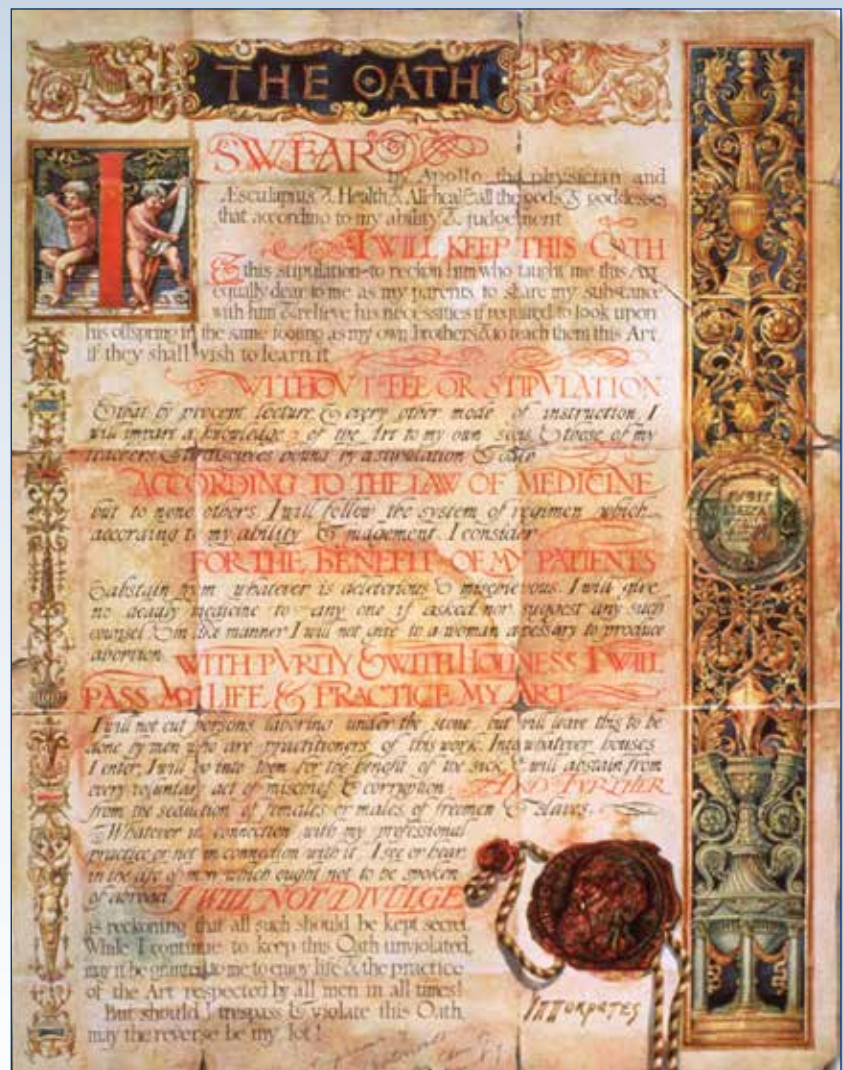 THE OATH
I
SWEAR
by Apollo the physician and
Æsculapius & Health & All-heal & all the gods & goddesses
that according to my ability & judgement
I WILL KEEP THIS OATH
& this stipulation-to reckon him who taught me this Art
equally dear to me as my parents to share my substance
with him & relieve his necessities if required to look upon
his offspring in the same footing as my own brothers & to teach them this Art
if they shall wish to learn it
WITHOVT FEE OR STIPVLATION
& that by precept lecture & every other mode of instruction, I
will impart a knowledge of the Art to my own sons & those of my
teachers & to disciples bound by a stipulation & oath
ACCORDING TO THE LAW OF MEDICINE
but to none others. I will follow the system of regimen which
according to my ability & judgement I consider
FOR THE BENEFIT OF MY PATIENTS
& abstain from whatever is deleterious & mischievous. I will give
no deadly medicine to any one if asked nor suggest any such
counsel & in like manner I will not give to a woman a pessary to produce
abortion WITH PVRITY & WITH HOLINESS I WILL
PASS MY LIFE & PRACTICE MY ART
I will not cut persons laboring under the stone but will leave this to be
done by men who are practitioners of this work. Into whatever houses
I enter, I will go into them for the benefit of the sick & will abstain from
every voluntary act of mischief & corruption AND FVRTHER
from the seduction of females or males, of freemen & slaves.
Whatever in connection with my professional
practice or not in connection with it I see or hear
in the life of men which ought not to be spoken
of abroad I WILL NOT DIVULGE
as reckoning that all such should be kept secret
While I continue to keep this Oath unviolated
may it be granted to me to enjoy life & the practice
of the Art respected by all men in all times!
But should I trespass & violate this Oath,
may the reverse be my lot!